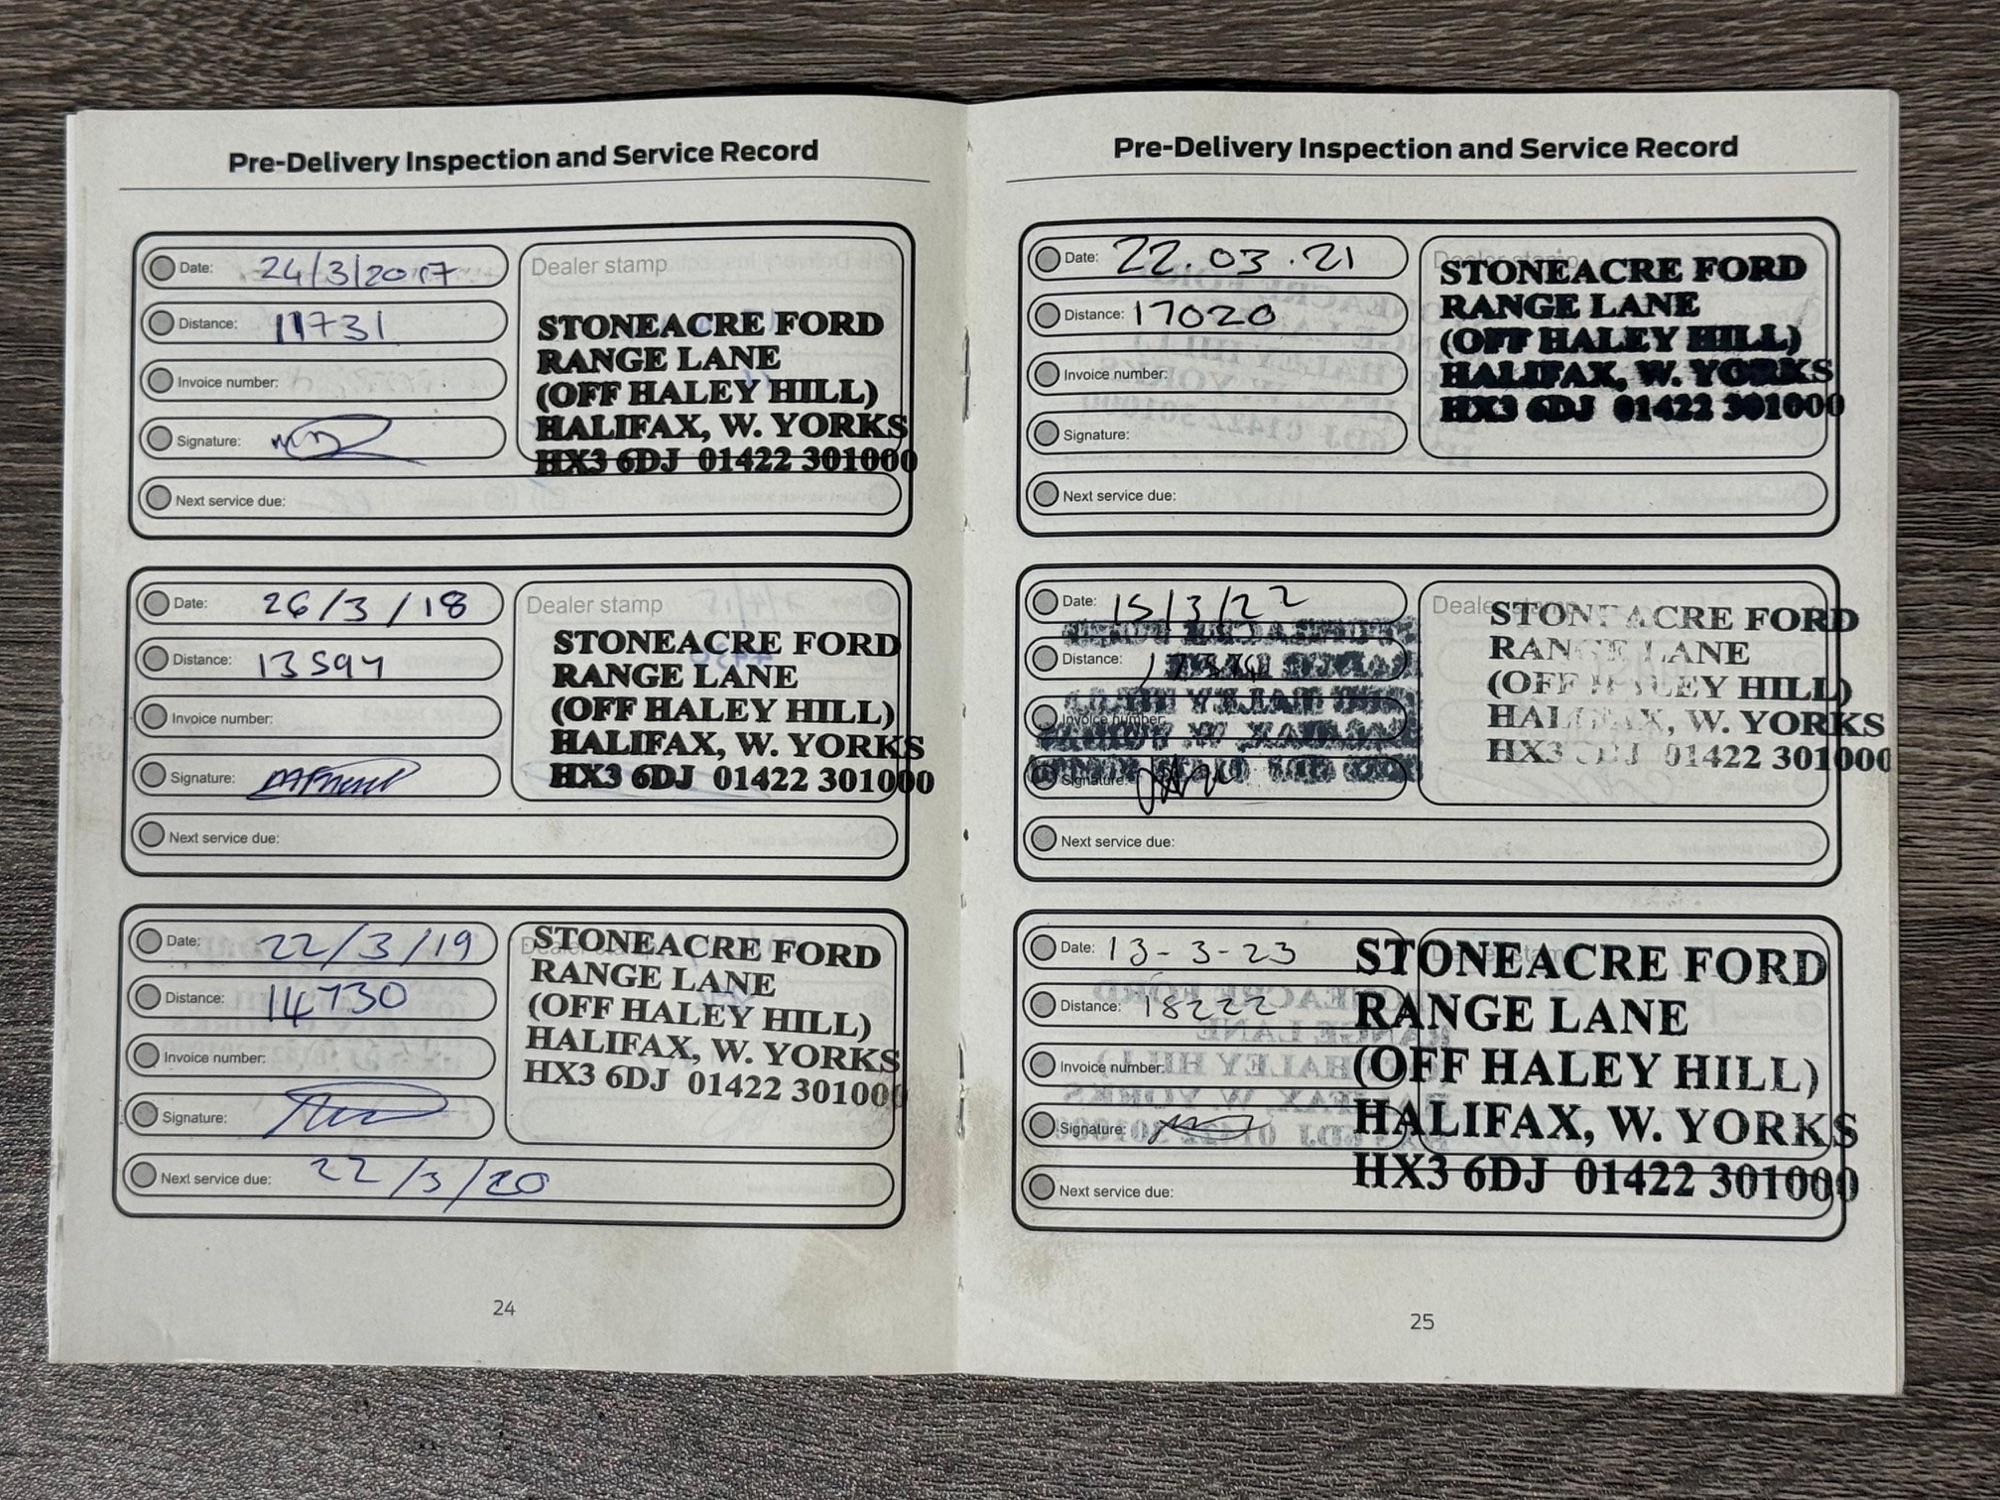 Pre-Delivery Inspection and Service Record
Date: 24/3/2017
Distance: 11731
Invoice number:
Signature:
Next service due:
Dealer stamp
STONEACRE FORD
RANGE LANE
(OFF HALEY HILL)
HALIFAX, W. YORKS
HX3 6DJ 01422 301000
Date: 26/3/18
Distance: 13594
Invoice number:
Signature:
Next service due:
Dealer stamp
STONEACRE FORD
RANGE LANE
(OFF HALEY HILL)
HALIFAX, W. YORKS
HX3 6DJ 01422 301000
Date: 22/3/19
Distance: 14730
Invoice number:
Signature:
Next service due: 22/3/20
Dealer stamp
STONEACRE FORD
RANGE LANE
(OFF HALEY HILL)
HALIFAX, W. YORKS
HX3 6DJ 01422 301000
24
Pre-Delivery Inspection and Service Record
Date: 22.03.21
Distance: 17020
Invoice number:
Signature:
Next service due:
Dealer stamp
STONEACRE FORD
RANGE LANE
(OFF HALEY HILL)
HALIFAX, W. YORKS
HX3 6DJ 01422 301000
Date: 15/3/22
Distance:
Invoice number:
Signature:
Next service due:
Dealer stamp
STONEACRE FORD
RANGE LANE
(OFF HALEY HILL)
HALIFAX, W. YORKS
HX3 6DJ 01422 301000
Date: 13-3-23
Distance: 18222
Invoice number:
Signature:
Next service due:
Dealer stamp
STONEACRE FORD
RANGE LANE
(OFF HALEY HILL)
HALIFAX, W. YORKS
HX3 6DJ 01422 301000
25